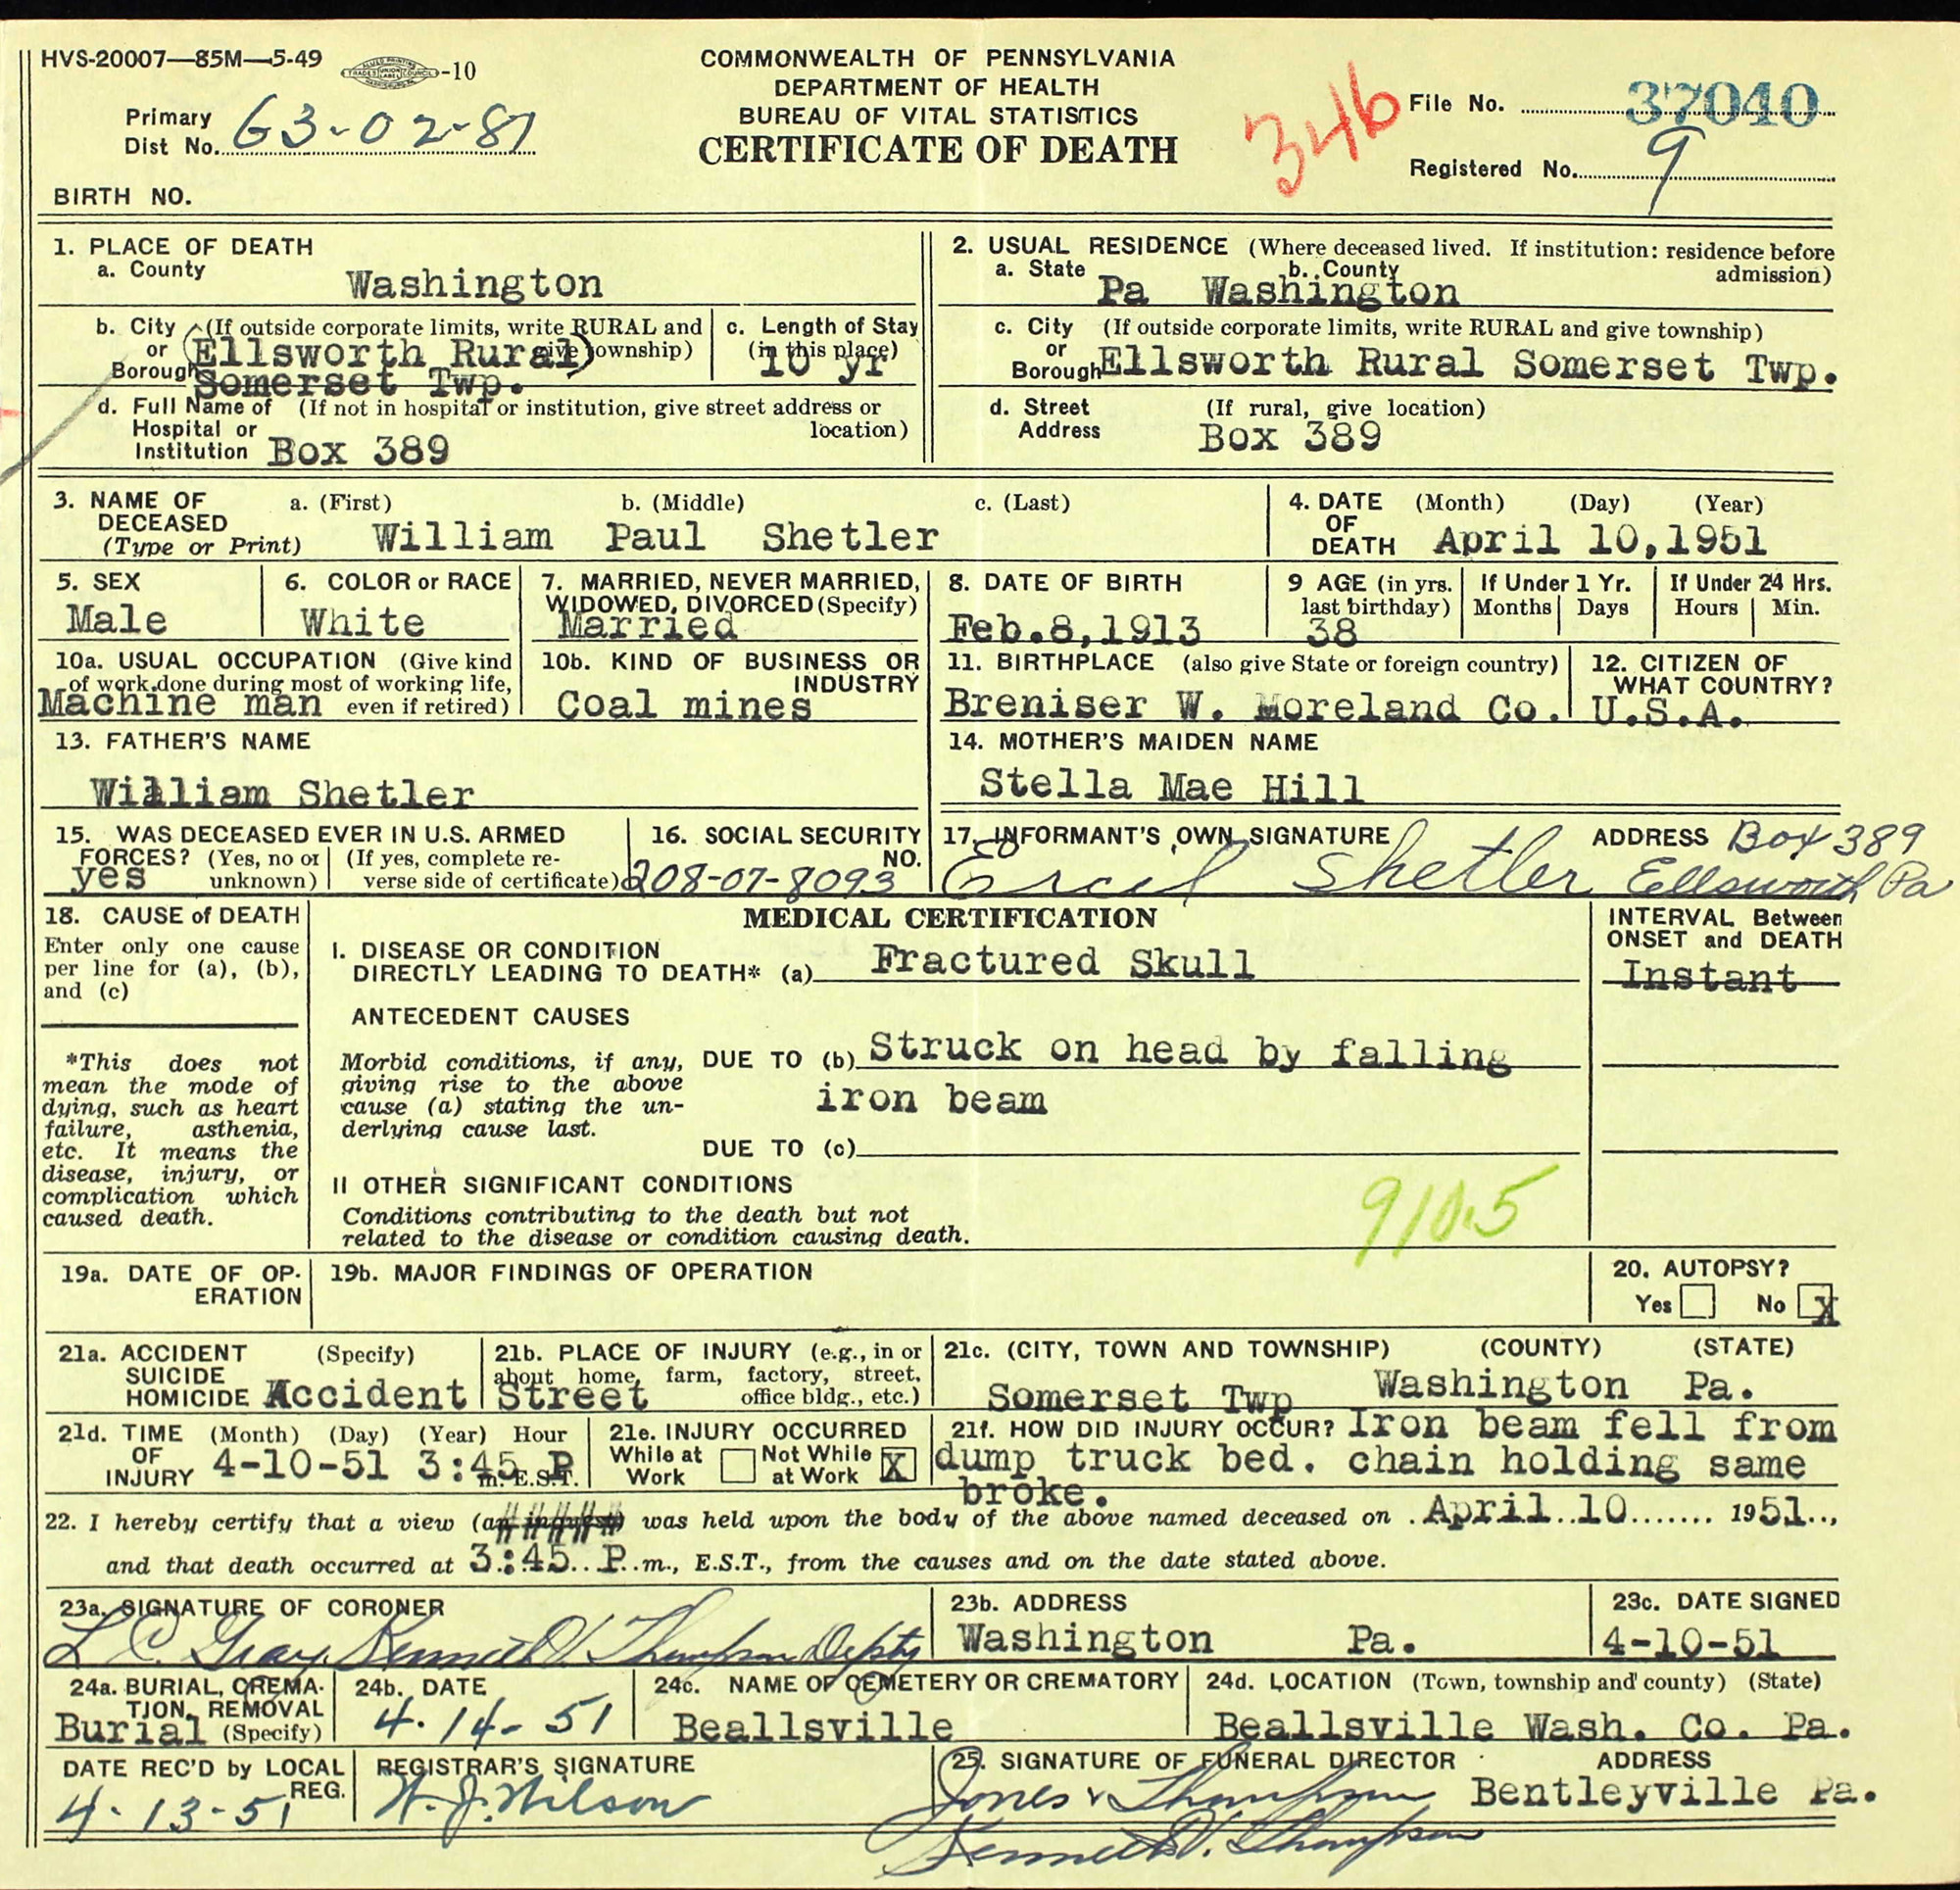 HVS-20007—85M—5-49 -10
COMMONWEALTH OF PENNSYLVANIA
DEPARTMENT OF HEALTH
BUREAU OF VITAL STATISTICS
CERTIFICATE OF DEATH
Primary
Dist No. 63-02-81
346
File No. 37040
Registered No. 9
BIRTH NO.
1. PLACE OF DEATH
a. County
Washington
b. City (If outside corporate limits, write RURAL and
or give township)
Borough
(Ellsworth Rural)
Somerset Twp.
c. Length of Stay
(in this place)
10 yr
d. Full Name of (If not in hospital or institution, give street address or
Hospital or location)
Institution Box 389
2. USUAL RESIDENCE (Where deceased lived. If institution: residence before
a. State b. County admission)
Pa Washington
c. City (If outside corporate limits, write RURAL and give township)
or
Borough Ellsworth Rural Somerset Twp.
d. Street (If rural, give location)
Address Box 389
3. NAME OF a. (First) b. (Middle) c. (Last)
DECEASED
(Type or Print) William Paul Shetler
4. DATE (Month) (Day) (Year)
OF
DEATH April 10,1951
5. SEX
Male
6. COLOR or RACE
White
7. MARRIED, NEVER MARRIED,
WIDOWED, DIVORCED (Specify)
Married
8. DATE OF BIRTH
Feb.8,1913
9 AGE (in yrs.
last birthday)
38
If Under 1 Yr.
Months Days
If Under 24 Hrs.
Hours Min.
10a. USUAL OCCUPATION (Give kind
of work done during most of working life,
Machine man even if retired)
10b. KIND OF BUSINESS OR
INDUSTRY
Coal mines
11. BIRTHPLACE (also give State or foreign country)
Breniser W. Moreland Co.
12. CITIZEN OF
WHAT COUNTRY?
U.S.A.
13. FATHER'S NAME
William Shetler
14. MOTHER'S MAIDEN NAME
Stella Mae Hill
15. WAS DECEASED EVER IN U.S. ARMED
FORCES? (Yes, no or (If yes, complete re-
yes unknown) verse side of certificate)
16. SOCIAL SECURITY
NO.
208-07-8093
17. INFORMANT'S OWN SIGNATURE ADDRESS Box 389
Shetler Ellsworth Pa
18. CAUSE of DEATH
Enter only one cause
per line for (a), (b),
and (c)
*This does not
mean the mode of
dying, such as heart
failure, asthenia,
etc. It means the
disease, injury, or
complication which
caused death.
MEDICAL CERTIFICATION
I. DISEASE OR CONDITION
DIRECTLY LEADING TO DEATH* (a) Fractured Skull
ANTECEDENT CAUSES
Morbid conditions, if any, DUE TO (b) Struck on head by falling
giving rise to the above
cause (a) stating the un- iron beam
derlying cause last.
DUE TO (c)
II OTHER SIGNIFICANT CONDITIONS
Conditions contributing to the death but not
related to the disease or condition causing death.
910.5
INTERVAL Between
ONSET and DEATH
Instant
19a. DATE OF OP-
ERATION
19b. MAJOR FINDINGS OF OPERATION
20. AUTOPSY?
Yes No X
21a. ACCIDENT (Specify)
SUICIDE
HOMICIDE Accident
21b. PLACE OF INJURY (e.g., in or
about home, farm, factory, street,
Street office bldg., etc.)
21c. (CITY, TOWN AND TOWNSHIP) (COUNTY) (STATE)
Somerset Twp Washington Pa.
21d. TIME (Month) (Day) (Year) Hour
OF
INJURY 4-10-51 3:45 P
m. E.S.T.
21e. INJURY OCCURRED
While at Not While X
Work at Work
21f. HOW DID INJURY OCCUR? Iron beam fell from
dump truck bed. chain holding same
broke.
22. I hereby certify that a view (an inquest) was held upon the body of the above named deceased on April 10 1951,
and that death occurred at 3:45 P.m., E.S.T., from the causes and on the date stated above.
23a. SIGNATURE OF CORONER
L C. Gray Kenneth V. Thompson Depty
23b. ADDRESS
Washington Pa.
23c. DATE SIGNED
4-10-51
24a. BURIAL, CREMA-
TION, REMOVAL
Burial (Specify)
24b. DATE
4-14-51
24c. NAME OF CEMETERY OR CREMATORY
Beallsville
24d. LOCATION (Town, township and county) (State)
Beallsville Wash. Co. Pa.
DATE REC'D by LOCAL
REG.
4-13-51
REGISTRAR'S SIGNATURE
W. J. Wilson
25. SIGNATURE OF FUNERAL DIRECTOR ADDRESS
Jones & Thompson Bentleyville Pa.
Kenneth V. Thompson